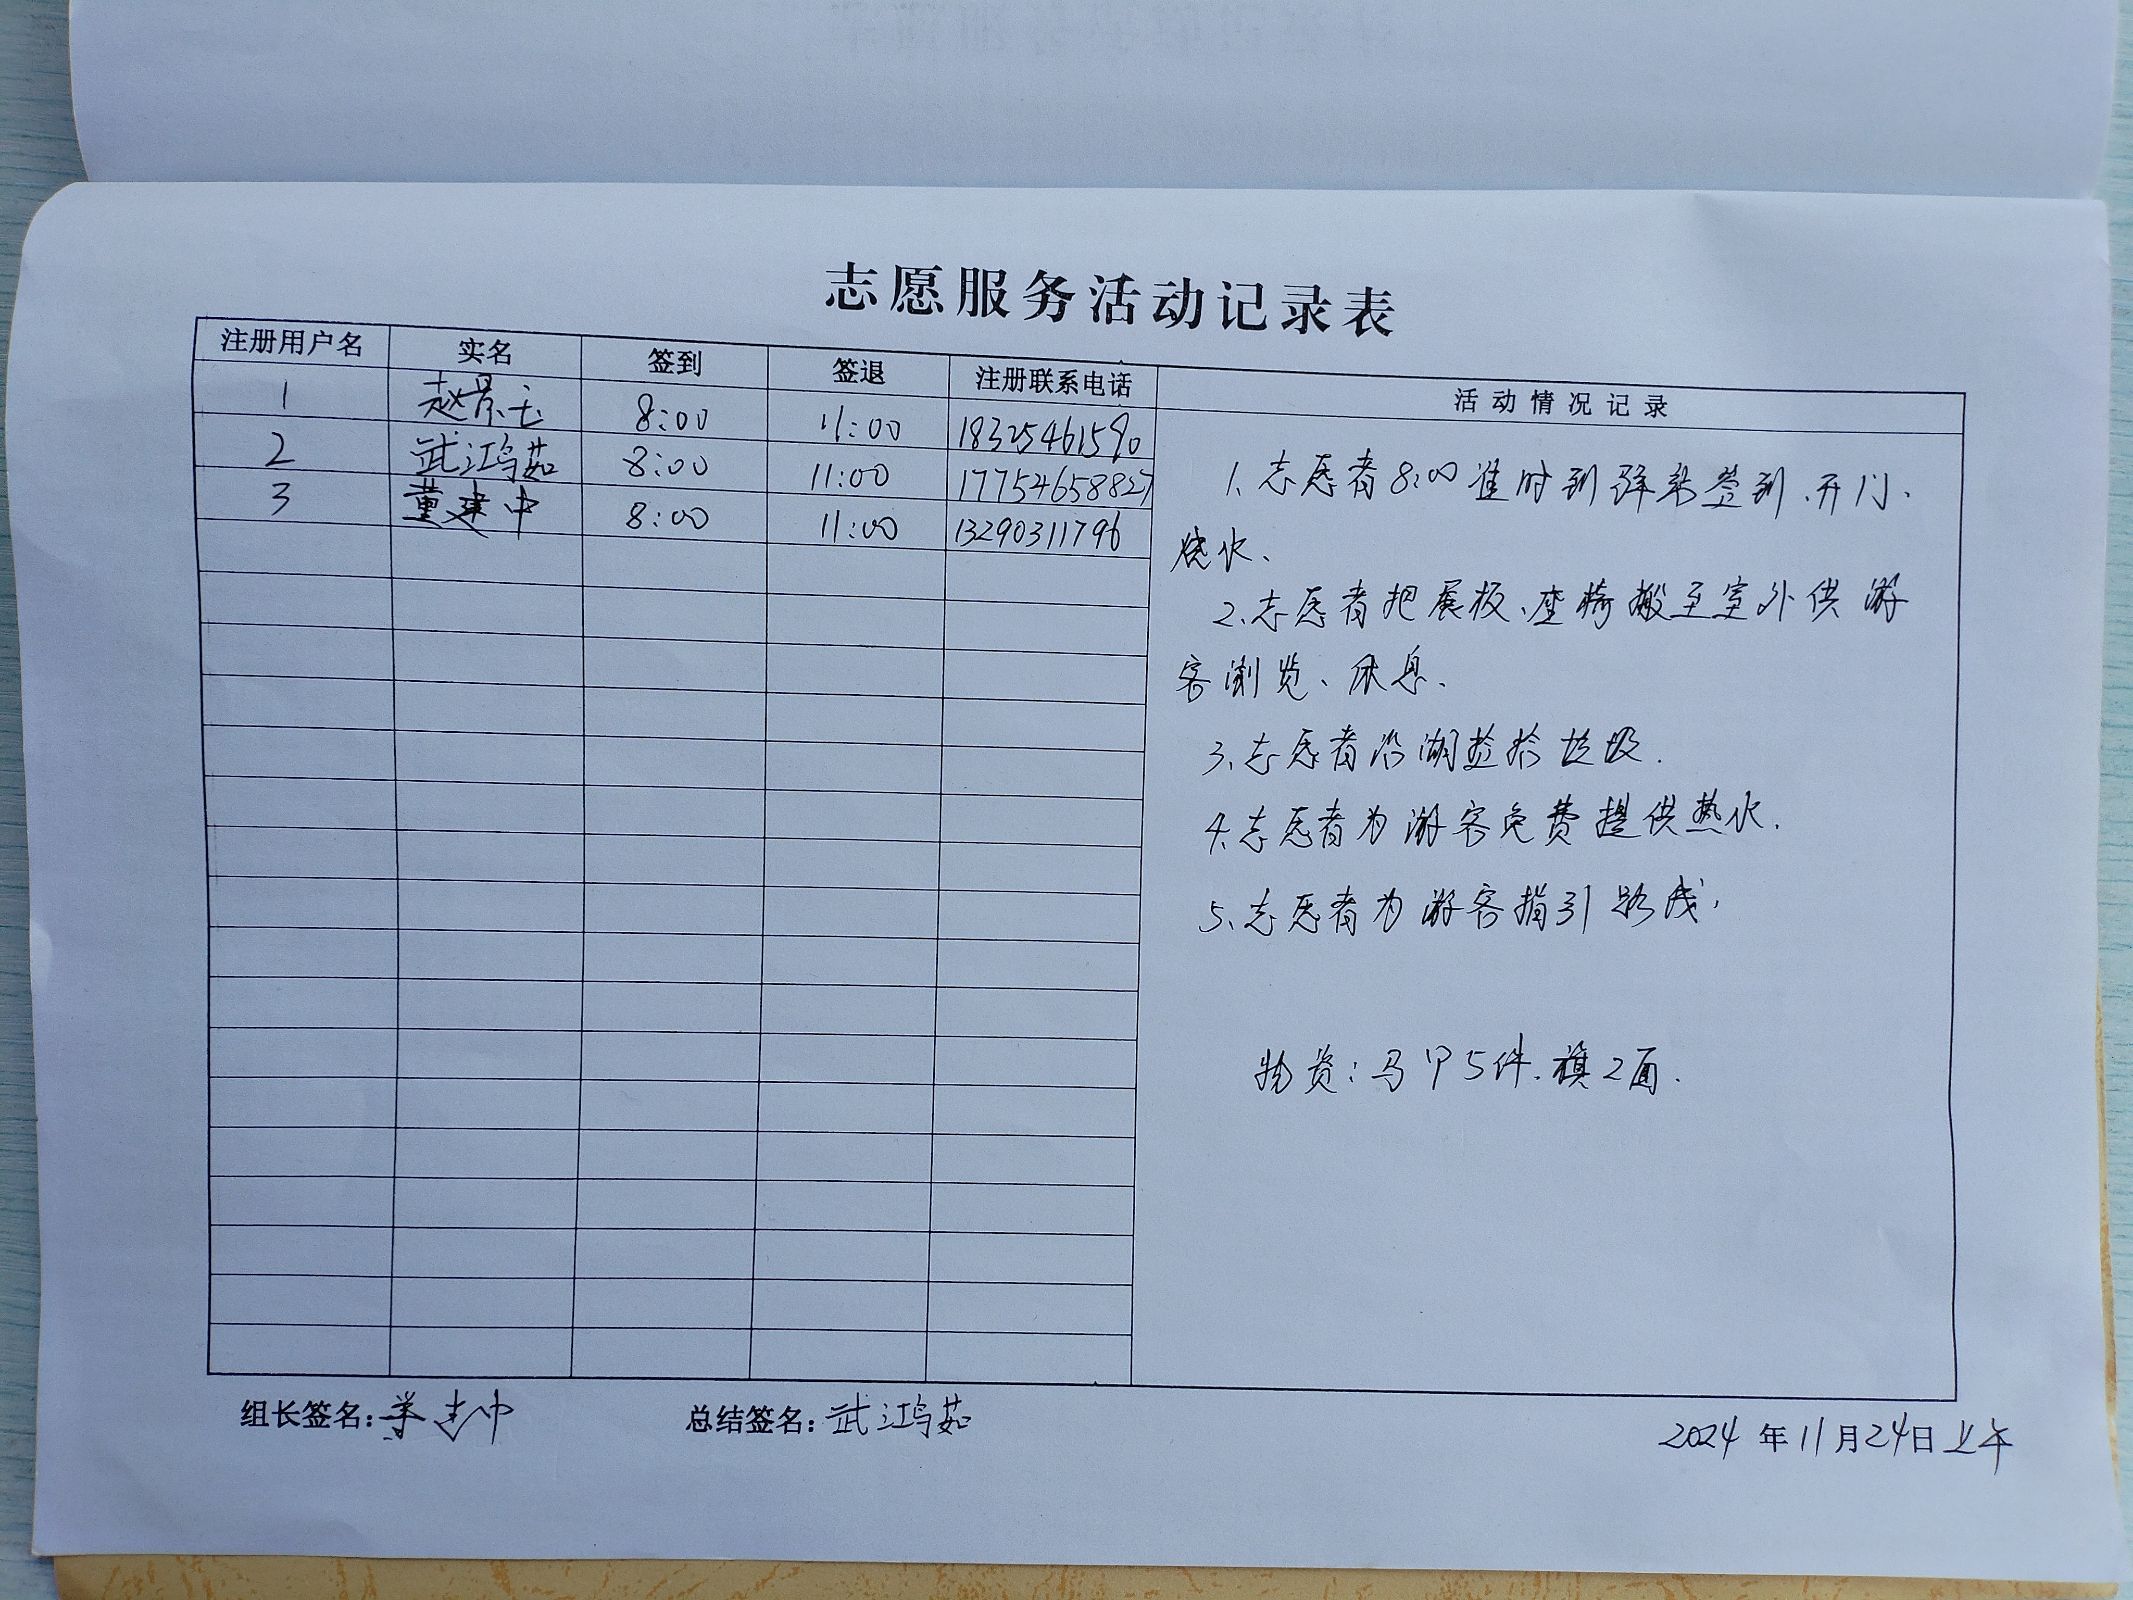 志愿服务活动记录表
注册用户名 实名 签到 签退 注册联系电话 活动情况记录
1 赵景 8:00 11:00 18325461590
2 武鸿茹 8:00 11:00 17754658827
3 董建中 8:00 11:00 13290311796
1、志愿者8:00准时到驿站签到、开门、
烧水、
2、志愿者把展板、座椅搬至室外供游
客浏览、休息、
3、志愿者沿湖捡拾垃圾.
4、志愿者为游客免费提供热水.
5、志愿者为游客指引路线,
物资:马甲5件、旗2面.
组长签名:董建中 总结签名:武鸿茹
2024年11月24日上午